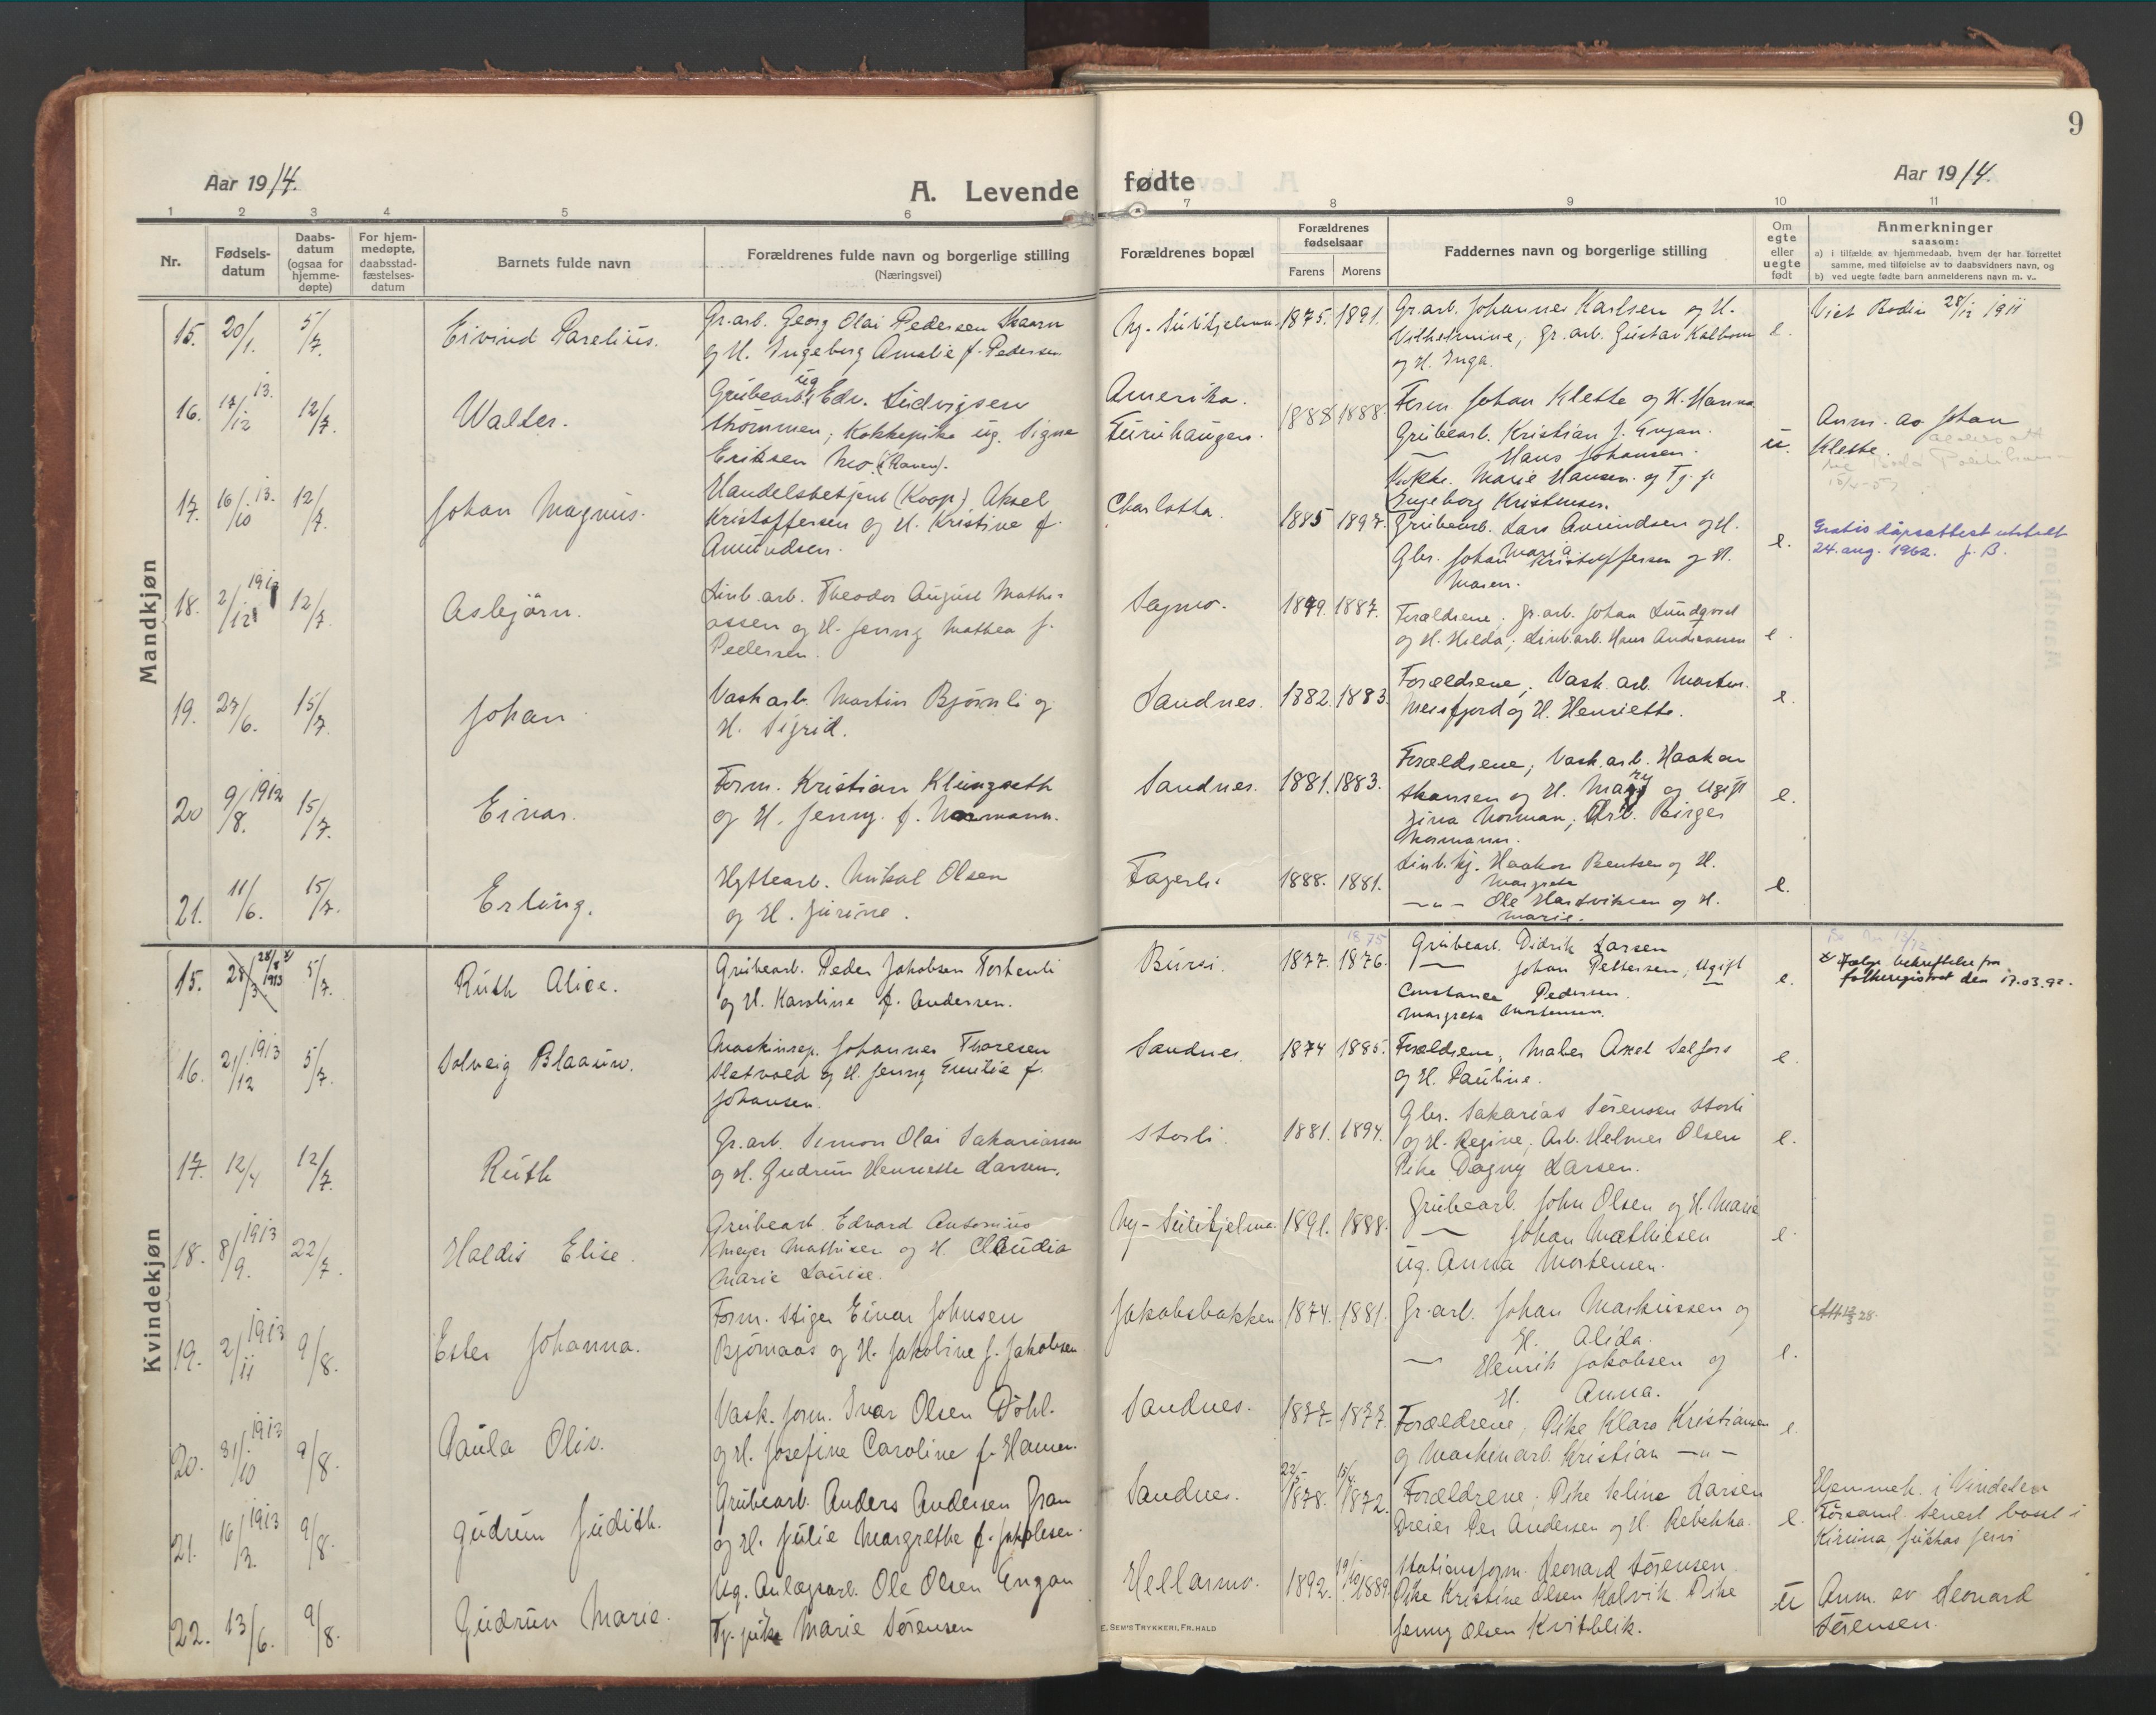 9
Aar 1914.
A. Levende fødte
Aar 1914.
1 2 3 4 5 6 7 8 9 10 11
Nr.
Fødsels-
datum
Daabs-
datum
(ogsaa for
hjemme-
døpte)
For hjem-
medøpte,
daabsstad-
fæstelses-
datum
Barnets fulde navn
Forældrenes fulde navn og borgerlige stilling
(Næringsvei)
Forældrenes bopæl
Forældrenes
fødselsaar
Farens Morens
Faddernes navn og borgerlige stilling
Om
egte
eller
uegte
født
Anmerkninger
saasom:
a) i tilfælde av hjemmedaab, hvem der har forrettet
samme, med tilføielse av to daabsvidners navn, og
b) ved uegte fødte barn anmelderens navn m. v..
Mandkjøn
15. 20/1. 5/7. Eivind Parelius.
Gr.arb. Georg Olai Pedersen Skaarn
og H. Ingeborg Amalie f. Pedersen
Ny-Sulitjelma 1875. 1891.
Gr.arb. Johannes Karlsen og H.
Vilhelmine, Gr. arb. Gustav Kalbom
og H. Inga.
e.
Viet Bodin 28/12 1911
16. 17/12 13. 12/7. Walter.
Grubearb. ug Edv. Ludvigsen
Strømmen; Kokkepike ug. Signe
Eriksen Mo (Ranen).
Amerika.
Furuhaugen.
1888 1888.
Form Johan Klette og H. Hanna
Grubearb. Kristian J. Engan.
— Hans Johansen.
Kokke. Marie Hansen og Tj. p.
Ingeborg Kristensen.
u.
Anm. av Johan
Klette.
17. 16/10 13. 12/7. Johan Magnus.
Handelsbetjent (Koop.) Aksel
Kristoffersen og H. Kristine f.
Amundsen.
Charlotta. 1885 1897.
Grubearb. Lars Amundsen og H.
Maria
Gbr. Johan Kristoffersen og H.
Maren.
e.
Gratis dåpsattest utstedt
24. aug. 1962. J. B.
18. 2/12 12/7. Asbjørn.
Linb.arb. Theodor August Mathi-
assen og H. Jenny Mathea f.
Pedersen.
Sagmo. 1879. 1887.
Forældrene; gr.arb. Johan Lundqvist
og H. Hilda; Linb.arb. Hans Andreassen
e.
19. 27/6. 15/7. Johan
Vaskarb. Martin Bjørnli og
H. Sigrid.
Sandnes. 1882. 1883.
Forældrene, Vask. arb. Morten
Meisfjord og H. Henriette.
e.
20 9/8. 1912 15/7. Einar.
Form. Kristian Klungseth
og H. Jenny f. Normann.
Sandnes. 1881. 1883.
Forældrene, Vask.arb. Haakon
Hansen og H. Mary og Ugift
Jina Norman; Arb. Birger
Normann.
e.
21. 11/6. 15/7. Erling.
Hyttearb. Mikal Olsen
og H. Jurine.
Fagerli 1888. 1881.
Linb. bj. Haakon Bentsen og H.
Margreta
—„— Ole Hartviksen og H.
Marie.
e.
Kvindekjøn
15. 28/3 28/8 x 1913 5/7. Ruth Alice.
Grubearb. Peder Jakobsen Tortenli
og H. Karoline f. Andersen.
Bursi. 1877. 1876. 1875
Grubearb. Didrik Larsen
— Johan Pettersen, Ugift
Constance Pedersen.
Margreta Mortensen.
e.
x Ifølge bekreftelse fra
folkeregistret den 17.03.92.
16. 21/12 1913 5/7. Solveig Blaauw.
Maskinrep. Johannes Thoresen
Slatvold og H. Jenny Emilie f.
Johansen.
Sandnes. 1874 1885.
Forældrene, Maler Axel Selfors
og H. Pauline.
e.
17. 12/4 12/7. Ruth
Gr.arb. Simon Olai Sakariassen
og H. Gudrun Henriette Larsen.
Storli. 1881. 1894.
Gbr. Sakarias Sørensen Storli
og H. Regine, Arb. Helmer Olsen
Pike Dagny Larsen.
e.
18. 8/9. 1913 22/7. Haldis Elise.
Grubearb. Edvard Antonius
Meyer Mathisen og H. Claudia
Marie Louise.
Ny-Sulitjelma. 1891. 1888.
Grubearb. John Olsen og H. Marie
— Johan Mathiesen
ug. Anna Mortensen.
e.
19. 2/11 1913 9/8. Ester Johanna.
Form. Stiger Einar Johnsen
Bjørnaas og H. Jakobine f. Jakobsen
Jakobsbakken. 1874. 1881.
Gr.arb. Johan Markussen og
H. Alida.
— Henrik Jakobsen og
H. Anna.
e.
20. 31/10 1913 9/8. Paula Oliv.
Vask. form. Ivar Olsen Døhl.
og H. Josefine Caroline f. Hansen.
Sandnes. 1877. 1877.
Forældrene, Pike Klara Kristiansen
og Maskinarb. Kristian —„—
e.
21. 16/3. 1913 9/8. Gudrun Judith.
Grubearb. Anders Andersen Gran
og H. Julie Margrethe f. Jakobsen.
Sandnes. 22/5 1878. 15/4. 1872.
Forældrene; Pike Seline Larsen
Dreier Per Andersen og H. Rebekka.
e.
Hjemmeh. i Vindelen
Forsaml. senest bosat i
Kiruna
22. 13/6. 9/8. Gudrun Marie.
Ug. Anlægsarb. Ole Olsen Engan
Tj. pike Marie Sørensen
Hellarmo. 1892. 19/10 1889
Stationsform. Leonard Sørensen
Pike Kristine Olsen Kalvik Pike
Jenny Olsen Kvitblik.
u
Anm. av Leonard
Sørensen.
E. SEM'S TRYKKERI, FR.HALD